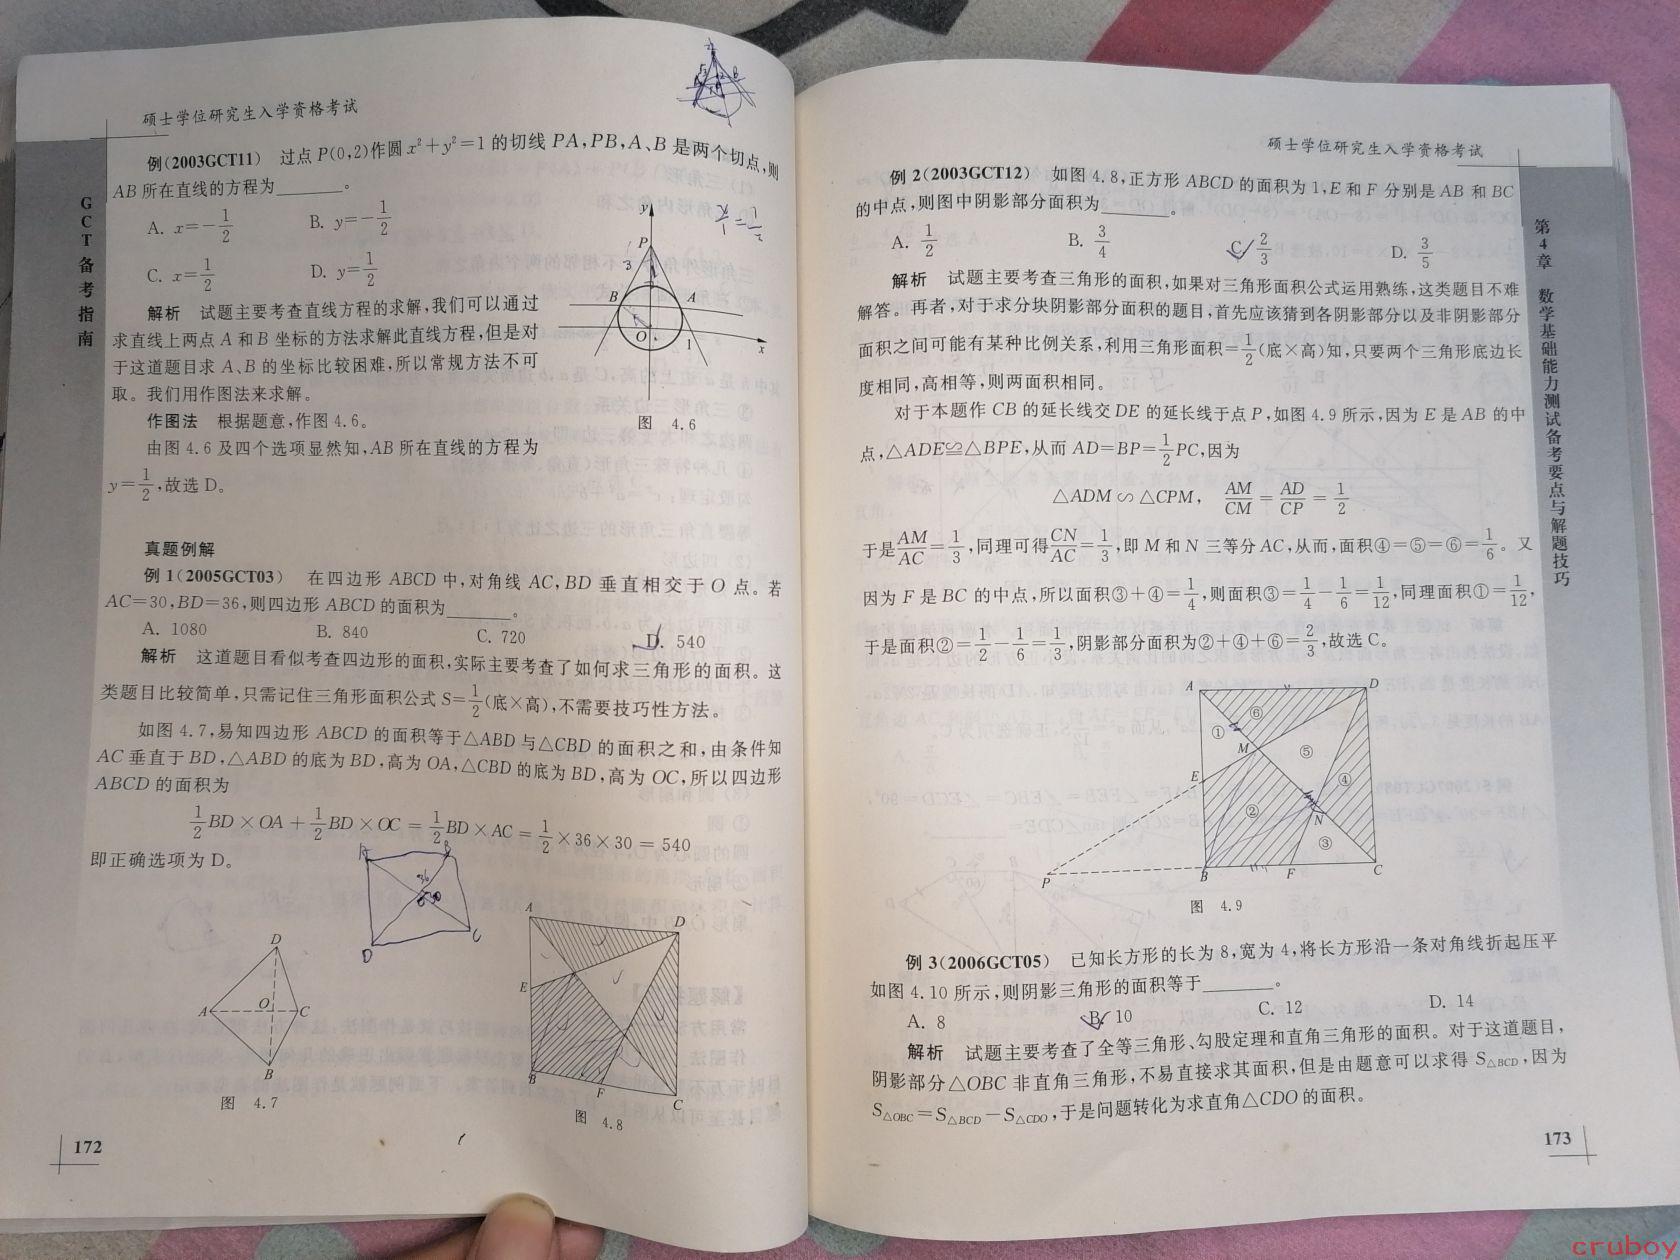 硕士学位研究生入学资格考试
GCT备考指南
例(2003GCT11) 过点P(0,2)作圆x²+y²=1的切线PA,PB,A、B是两个切点,则
AB所在直线的方程为______。
A. x=-1/2 B. y=-1/2
C. x=1/2 D. y=1/2
解析 试题主要考查直线方程的求解,我们可以通过
求直线上两点A和B坐标的方法求解此直线方程,但是对
于这道题目求A、B的坐标比较困难,所以常规方法不可
取。我们用作图法来求解。
作图法 根据题意,作图4.6。
由图4.6及四个选项显然知,AB所在直线的方程为
y=1/2,故选D。
y
P
B A
O 1 x
图 4.6
真题例解
例1(2005GCT03) 在四边形ABCD中,对角线AC,BD垂直相交于O点。若
AC=30,BD=36,则四边形ABCD的面积为______。
A. 1080 B. 840 C. 720 D. 540
解析 这道题目看似考查四边形的面积,实际主要考查了如何求三角形的面积。这
类题目比较简单,只需记住三角形面积公式S=1/2(底×高),不需要技巧性方法。
如图4.7,易知四边形ABCD的面积等于△ABD与△CBD的面积之和,由条件知
AC垂直于BD,△ABD的底为BD,高为OA,△CBD的底为BD,高为OC,所以四边形
ABCD的面积为
1/2BD×OA+1/2BD×OC=1/2BD×AC=1/2×36×30=540
即正确选项为D。
A B
36
30
D C
D
A O C
B
图 4.7
A D
E
B F C
图 4.8
172
硕士学位研究生入学资格考试
第4章 数学基础能力测试备考要点与解题技巧
例2(2003GCT12) 如图4.8,正方形ABCD的面积为1,E和F分别是AB和BC
的中点,则图中阴影部分面积为______。
A. 1/2 B. 3/4 C. 2/3 D. 3/5
解析 试题主要考查三角形的面积,如果对三角形面积公式运用熟练,这类题目不难
解答。再者,对于求分块阴影部分面积的题目,首先应该猜到各阴影部分以及非阴影部分
面积之间可能有某种比例关系,利用三角形面积=1/2(底×高)知,只要两个三角形底边长
度相同,高相等,则两面积相同。
对于本题作CB的延长线交DE的延长线于点P,如图4.9所示,因为E是AB的中
点,△ADE≌△BPE,从而AD=BP=1/2PC,因为
△ADM∽△CPM, AM/CM=AD/CP=1/2
于是AM/AC=1/3,同理可得CN/AC=1/3,即M和N三等分AC,从而,面积④=⑤=⑥=1/6。又
因为F是BC的中点,所以面积③+④=1/4,则面积③=1/4-1/6=1/12,同理面积①=1/12,
于是面积②=1/2-1/6=1/3,阴影部分面积为②+④+⑥=2/3,故选C。
A D
⑥
①
M ⑤
E ④
②
N
③
P B F C
图 4.9
例3(2006GCT05) 已知长方形的长为8,宽为4,将长方形沿一条对角线折起压平
如图4.10所示,则阴影三角形的面积等于______。
A. 8 B. 10 C. 12 D. 14
解析 试题主要考查了全等三角形、勾股定理和直角三角形的面积。对于这道题目,
阴影部分△OBC非直角三角形,不易直接求其面积,但是由题意可以求得S△BCD,因为
S△OBC=S△BCD-S△CDO,于是问题转化为求直角△CDO的面积。
173
cruboy